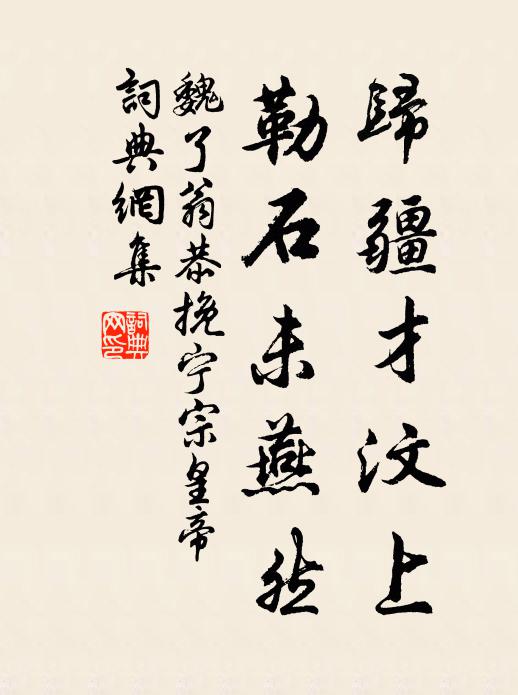 歸疆才汶上
勒石未燕然
魏了翁恭挽宁宗皇帝
詞典網集
詞典
网印